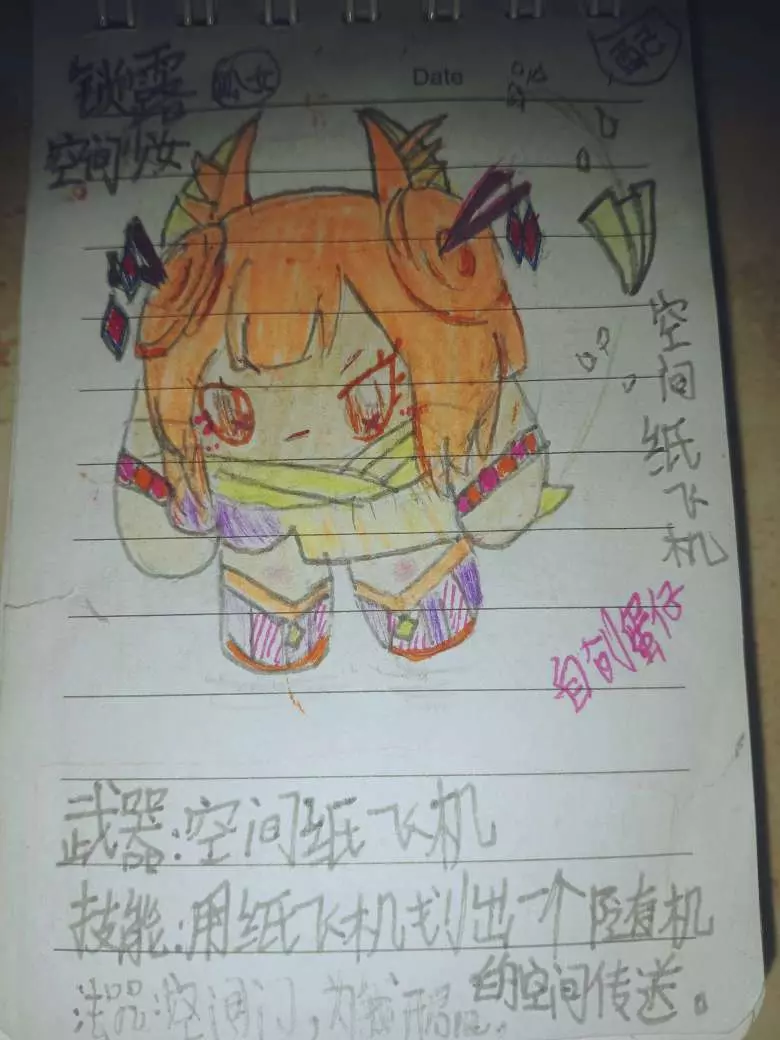 锁露
Date
空间少女
空间纸飞机
自创蛋仔
武器:空间纸飞机
技能:用纸飞机划出一个随机
的空间传送。
法器:空间门,为